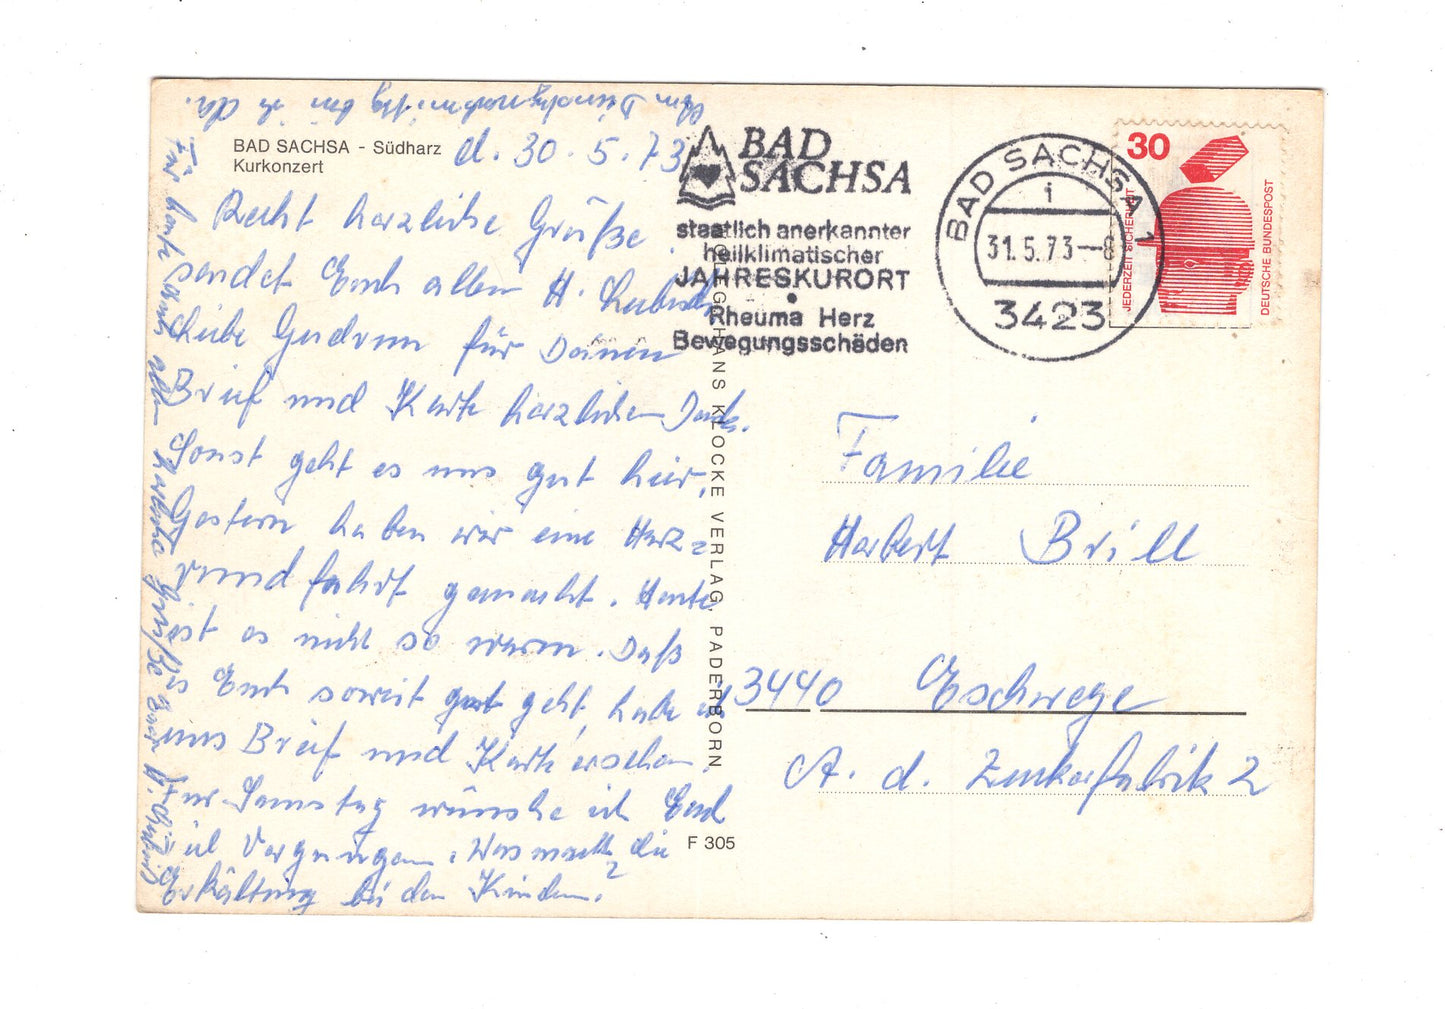 BAD SACHSA - Südharz
Kurkonzert
d. 30. 5. 73
Recht herzliche Grüße
sendet Euch allen H.
Liebe Gudrun für Deinen
Brief und Karte herzlichen Dank.
Sonst geht es uns gut hier.
Gestern haben wir eine Harz=
rundfahrt gemacht. Heute
ist es nicht so warm. Daß
es Euch soweit gut geht, habe ich
aus Brief und Karte ersehen.
Für Samstag wünsche ich Euch
viel Vergnügen. Was macht die
Erkältung bei den Kindern?
Für heute Euch allen herzliche Grüße Euer H.
WOLFGANG HANS KLOCKE VERLAG, PADERBORN
F 305
BAD
SACHSA
staatlich anerkannter
heilklimatischer
JAHRESKURORT
Rheuma Herz
Bewegungsschäden
BAD SACHSA 1
i
31.5.73-8
3423
30
JEDERZEIT SICHERHEIT
DEUTSCHE BUNDESPOST
Familie
Herbert Brill
3440 Eschwege
A. d. Zuckerfabrik 2